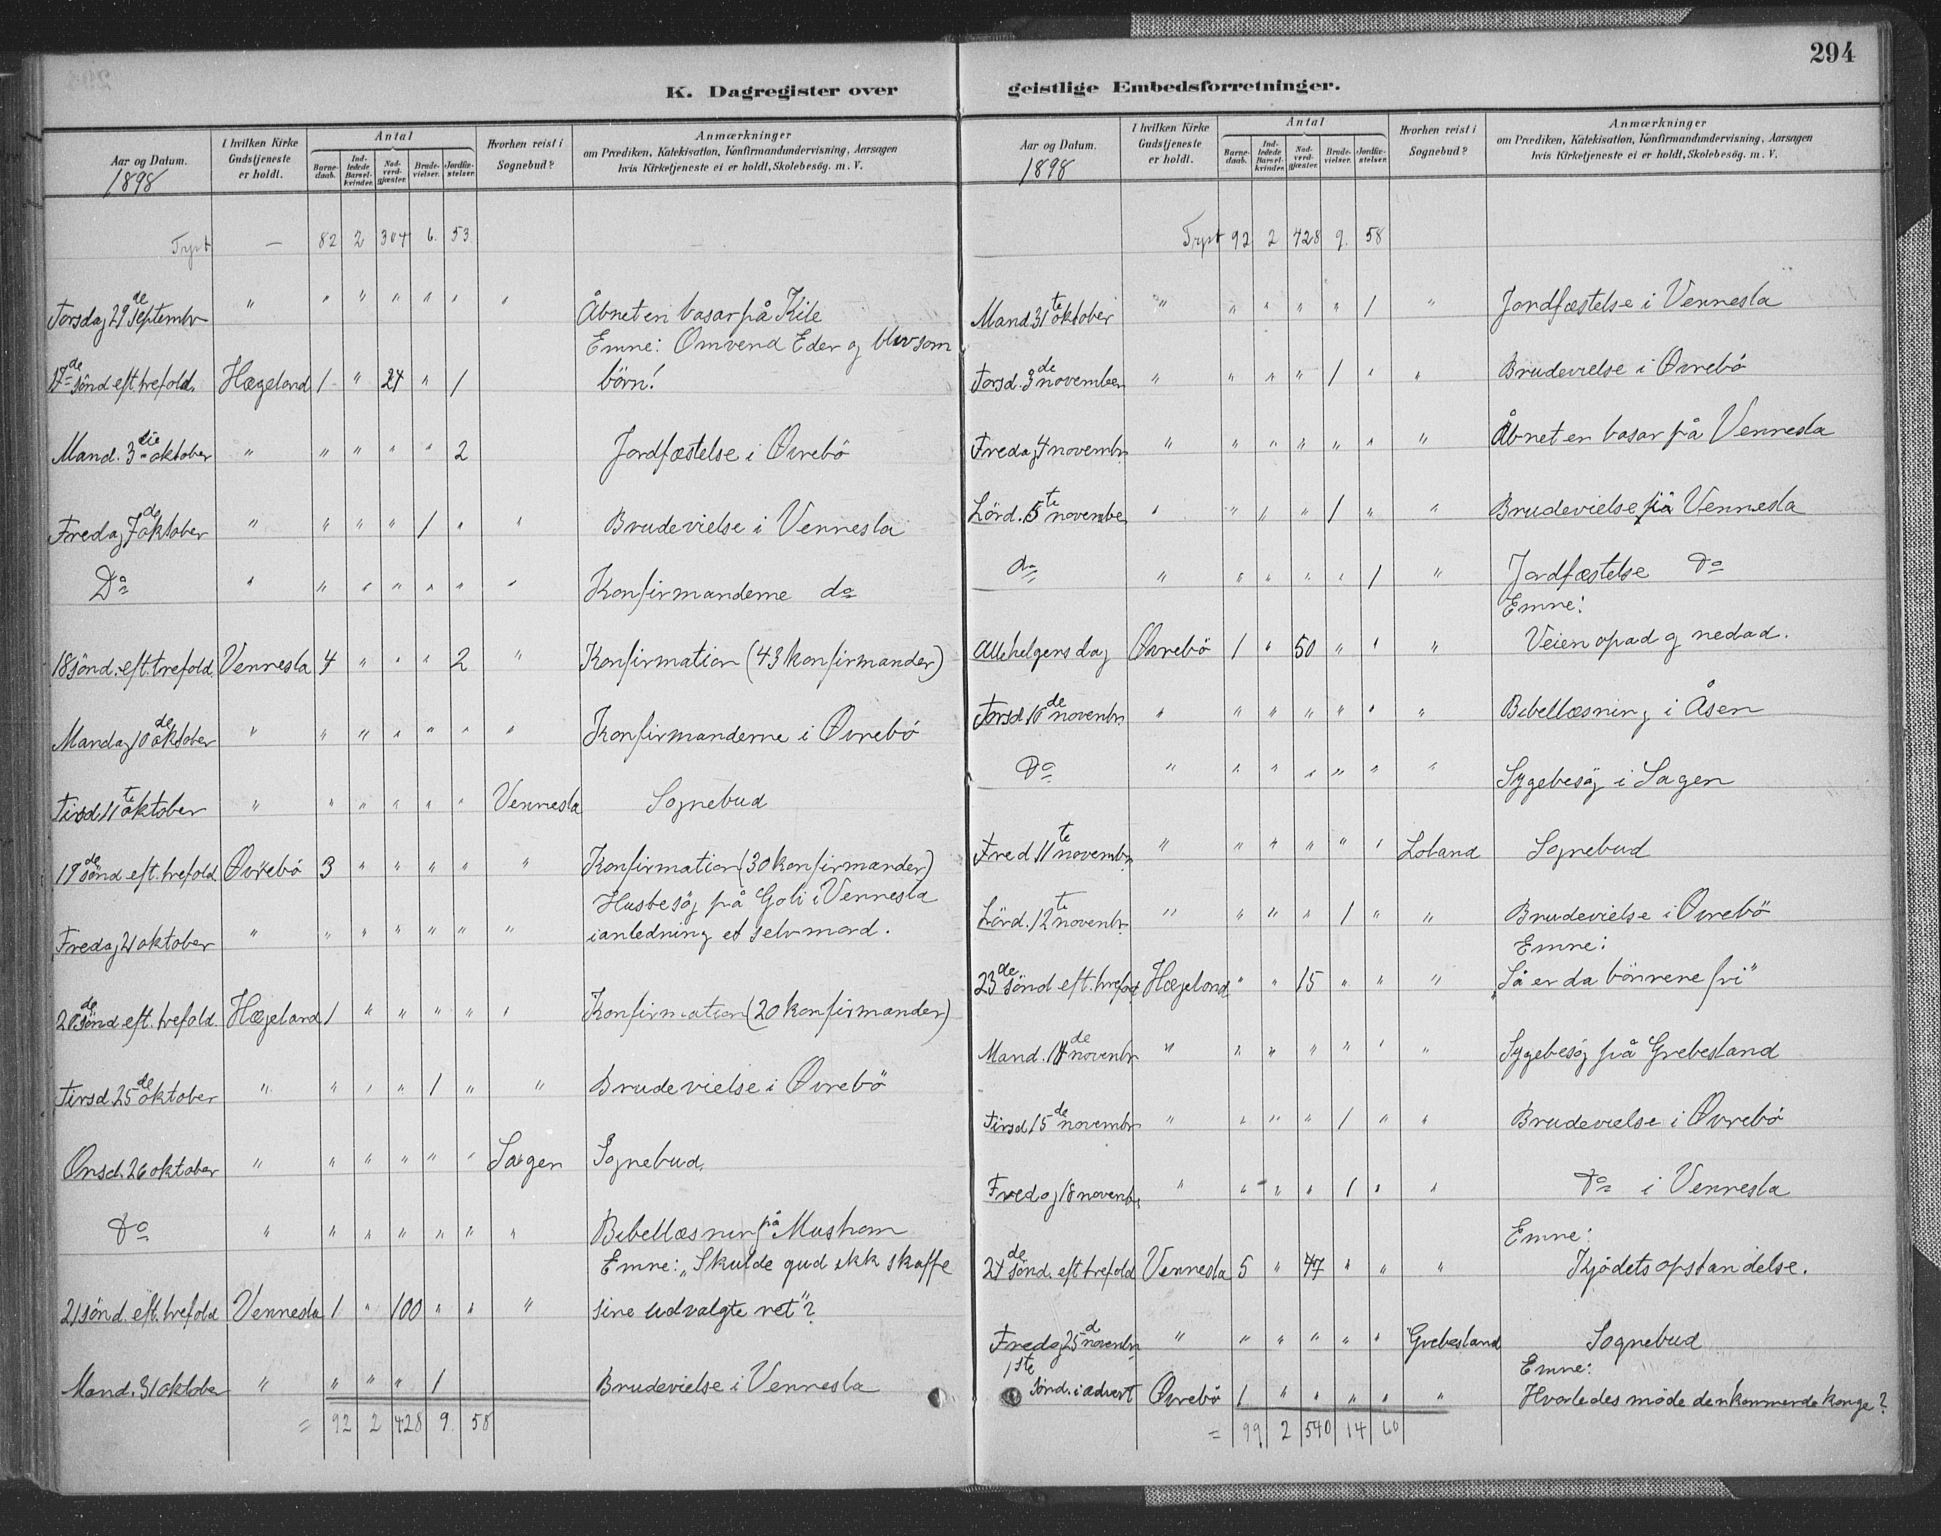 294
K. Dagregister over geistlige Embedsforretninger.
Aar og Datum. 1898 | I hvilken Kirke Gudstjeneste er holdt. | Antal | Barnedaab. | Indledede Barselkvinder. | Nadverdgjæster. | Brudevielser. | Jordfæstelser. | Hvorhen reist i Sognebud? | Anmærkninger om Prædiken, Katekisation, Konfirmandundervisning, Aarsagen hvis Kirketjeneste ei er holdt, Skolebesög. m. V.
— 82 2 304 6. 53.
Torsdag 29de September " " " " " " " Åbnet en basar på Kile
Emne: Omvend Eder og bliv som
17de sönd eft. trefold. Hægeland 1 " 24 " 1 börn!
Mand. 3die oktober " " " " " 2 Jordfæstelse i Øvrebö
Fredag 7de oktober " " " " 1 " " Brudevielse i Vennesla
Do " " " " " " " Konfirmanderne do
18 sönd. eft. trefold. Vennesla 4 " " " 2 " Konfirmation (43 konfirmander)
Mandag 10de oktober " " " " " " " Konfirmanderne i Øvrebö
Tirsd 11te oktober " " " " " " Vennesla Sognebud
19de sönd eft. trefold Øvrebö 3 " " " " " Konfirmation (30 konfirmander)
Husbesög på Goli i Vennesla
Fredag 21 oktober " " " " " " " i anledning et selvmord.
20de sönd eft. trefold. Hægeland 1 " " " " " Konfirmation (20 konfirmander)
Tirsd 25de oktober " " " " 1 " " Brudevielse i Øvrebö
Onsd. 26 oktober " " " " " " Sagen Sognebud.
Do " " " " " " " Bibellæsning på Mushom
Emne: "Skulde gud ikk skaffe
21 sönd. eft. trefold Vennesla 1 " 100 " " " sine udvalgte ret"?
Mand. 31 oktober " " " " 1 Brudevielse i Vennesla
= 92 2 428 9. 58
Aar og Datum. 1898 | I hvilken Kirke Gudstjeneste er holdt. | Antal | Barnedaab. | Indledede Barselkvinder. | Nadverdgjæster. | Brudevielser. | Jordfæstelser. | Hvorhen reist i Sognebud? | Anmærkninger om Prædiken, Katekisation, Konfirmandundervisning, Aarsagen hvis Kirketjeneste ei er holdt, Skolebesög. m. V.
92 2 428 9. 58
Mand 31te oktober " " " " " 1 " Jordfæstelse i Vennesla
Torsd. 3de november " " " " 1 " " Brudevielse i Øvrebö
Fredag 4 novembr. " " " " " " " Åbnet en basar på Vennesla
Lörd. 5te november " " " " 1 " " Brudevielse på Vennesla
do " " " " " 1 " Jordfæstelse Do
Emne:
Allehelgensdag Øvrebö 1 " 50 " " " Veien opad og nedad.
Torsd. 10de novembr. " " " " " " " Bibellæsning i Åsen
Do " " " " " " " Sygebesög i Sagen
Fred 11te novembr. " " " " " " Loland Sognebud
Lörd. 12te novembr. " " " " 1 " " Brudevielse i Øvrebö
Emne:
23de sönd eft. trefold Hægeland " " 15 " " " "Så er da börnene fri"
Mand. 14de novembr " " " " " " " Sygebesög på Grebesland
Tirsd 15de novembr " " " " 1 " " Brudevielse i Øvrebö
Fredag 18 novembr. " " " " 1 " " Do i Vennesla
Emne:
24de sönd. eft trefold Vennesla 5 " 47 " " " Kjödets opstandelse.
Fredag 25d novembr. " " " " " " Grebesland Sognebud
Emne:
1ste Sönd. i advent Øvrebö 1 " " " " " Hvorledes möde den kommende konge?
= 99 2 540 14 60